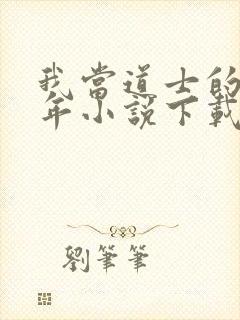 我當道士的
年小說下載
劉筆筆